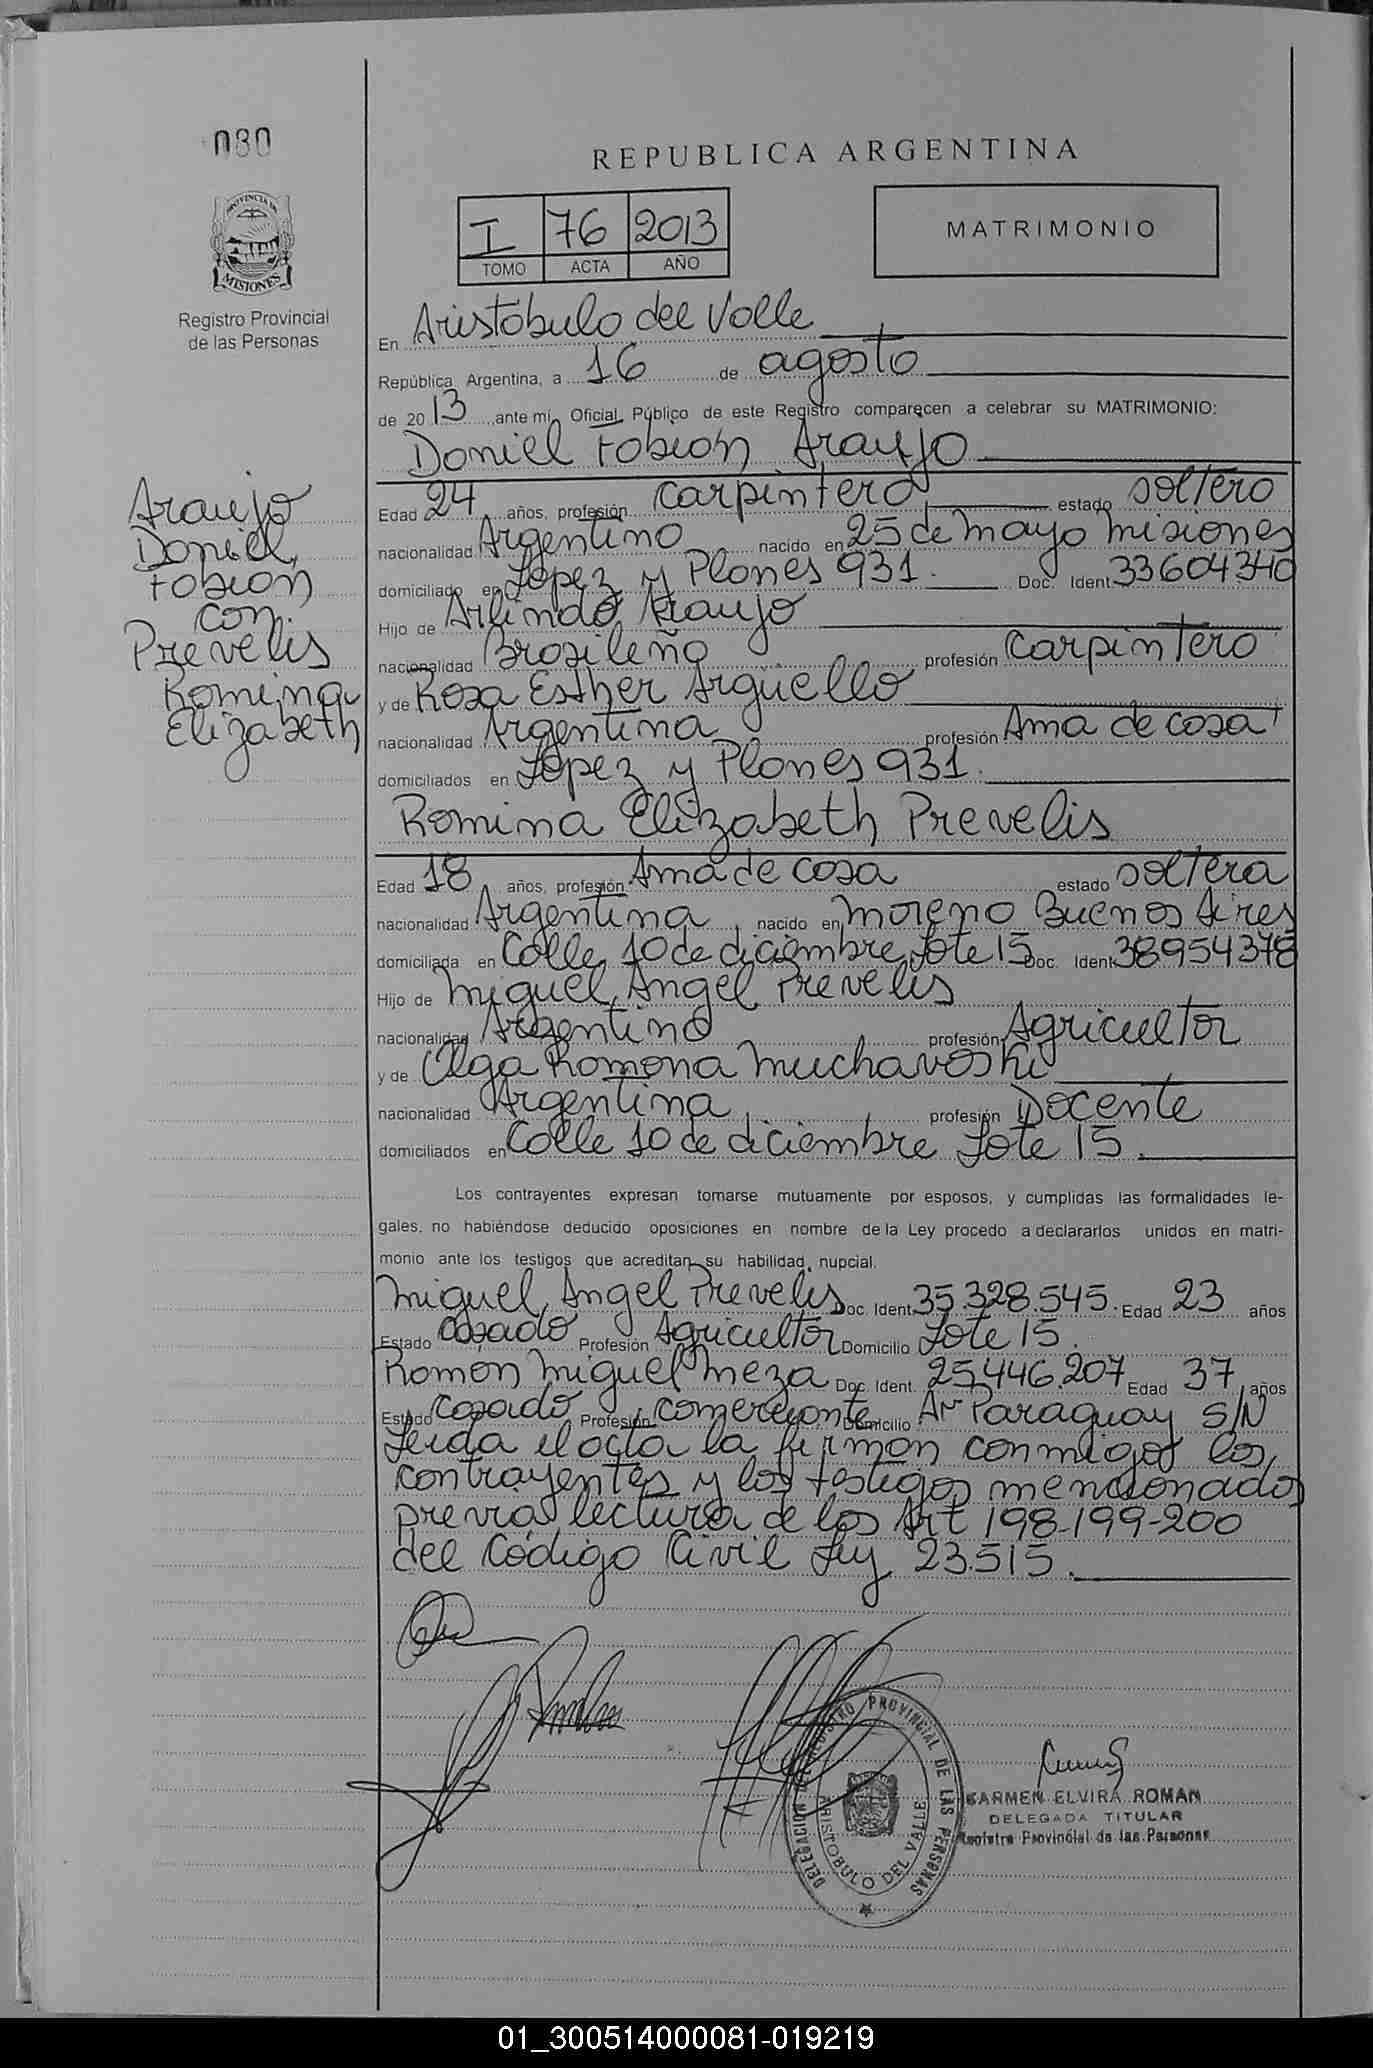 080
REPUBLICA ARGENTINA
PROVINCIA DE
MISIONES
Registro Provincial
de las Personas
I 76 2013
TOMO ACTA AÑO
MATRIMONIO
En Aristóbulo del Valle
República Argentina, a 16 de agosto
de 2013 ante mí, Oficial Público de este Registro comparecen a celebrar su MATRIMONIO:
Daniel Fabián Araujo
Araujo
Daniel
Fabian
con
Prevelis
Romina
Elizabeth
Edad 24 años, profesión carpintero estado soltero
nacionalidad Argentino nacido en 25 de mayo misiones
domiciliado en López y Planes 931. Doc. Ident. 33604340
Hijo de Arlindo Araujo
nacionalidad Brasileño profesión carpintero
y de Rosa Esther Argüello
nacionalidad Argentina profesión Ama de casa
domiciliados en López y Planes 931.
Romina Elizabeth Prevelis
Edad 18 años, profesión Ama de casa estado soltera
nacionalidad Argentina nacido en moreno Buenos Aires
domiciliada en Calle 10 de diciembre Lote 15 Doc. Ident 38954378
Hijo de miguel Angel Prevelis
nacionalidad Argentino profesión Agricultor
y de Olga Ramona muchavoski
nacionalidad Argentina profesión Docente
domiciliados en Calle 10 de diciembre Lote 15.
Los contrayentes expresan tomarse mutuamente por esposos, y cumplidas las formalidades le-
gales, no habiéndose deducido oposiciones en nombre de la Ley procedo a declararlos unidos en matri-
monio ante los testigos que acreditan su habilidad nupcial.
miguel Angel Prevelis Doc. Ident. 35.328.545. Edad 23 años
Estado casado Profesión Agricultor Domicilio Lote 15.
Ramón miguel meza Doc. Ident. 25.446.207 Edad 37 años
Estado casado Profesión comerciante Domicilio Av Paraguay S/N
Leida el acta la firman conmigo los
contrayentes y los testigos mencionados
previa lectura de los Art 198-199-200
del Código Civil Ley 23.515.
DELEGACION REGISTRO PROVINCIAL DE LAS PERSONAS
ARISTOBULO DEL VALLE
CARMEN ELVIRA ROMAN
DELEGADA TITULAR
Registro Provincial de las Personas
01_300514000081-019219